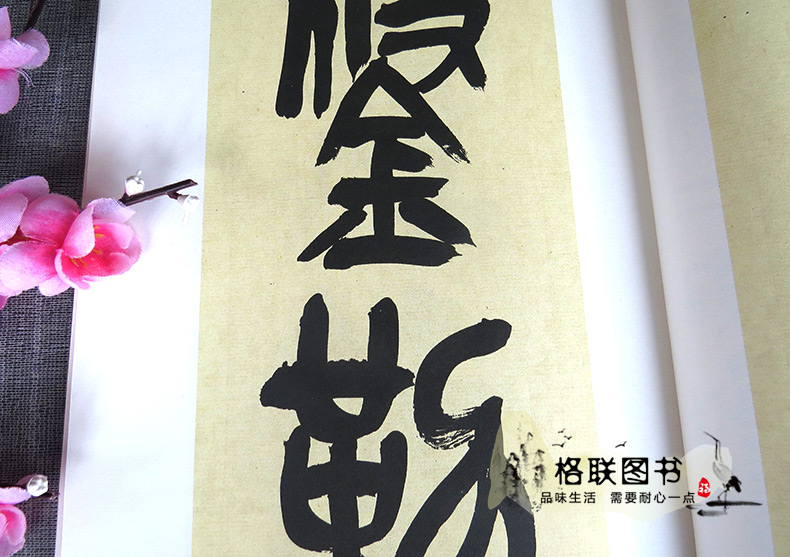 鋚
勒
格联图书
品味生活 需要耐心一点